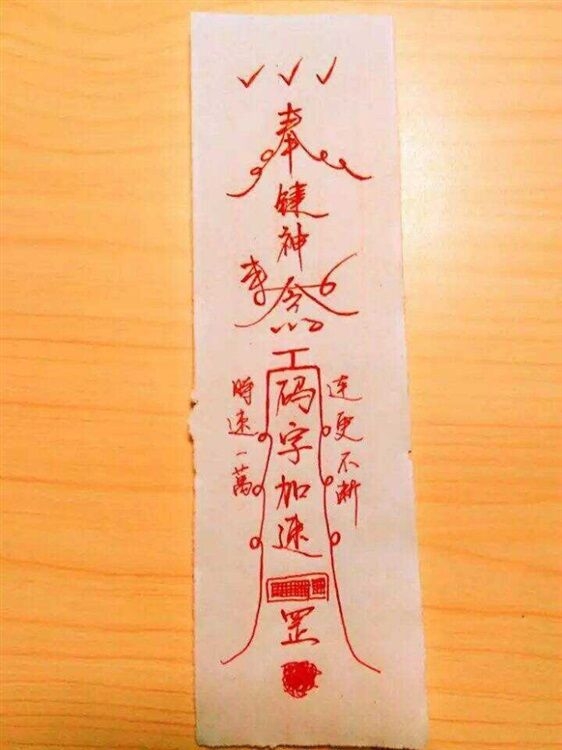 奉
键神
令
码字加速
時速一萬
连更不断
罡